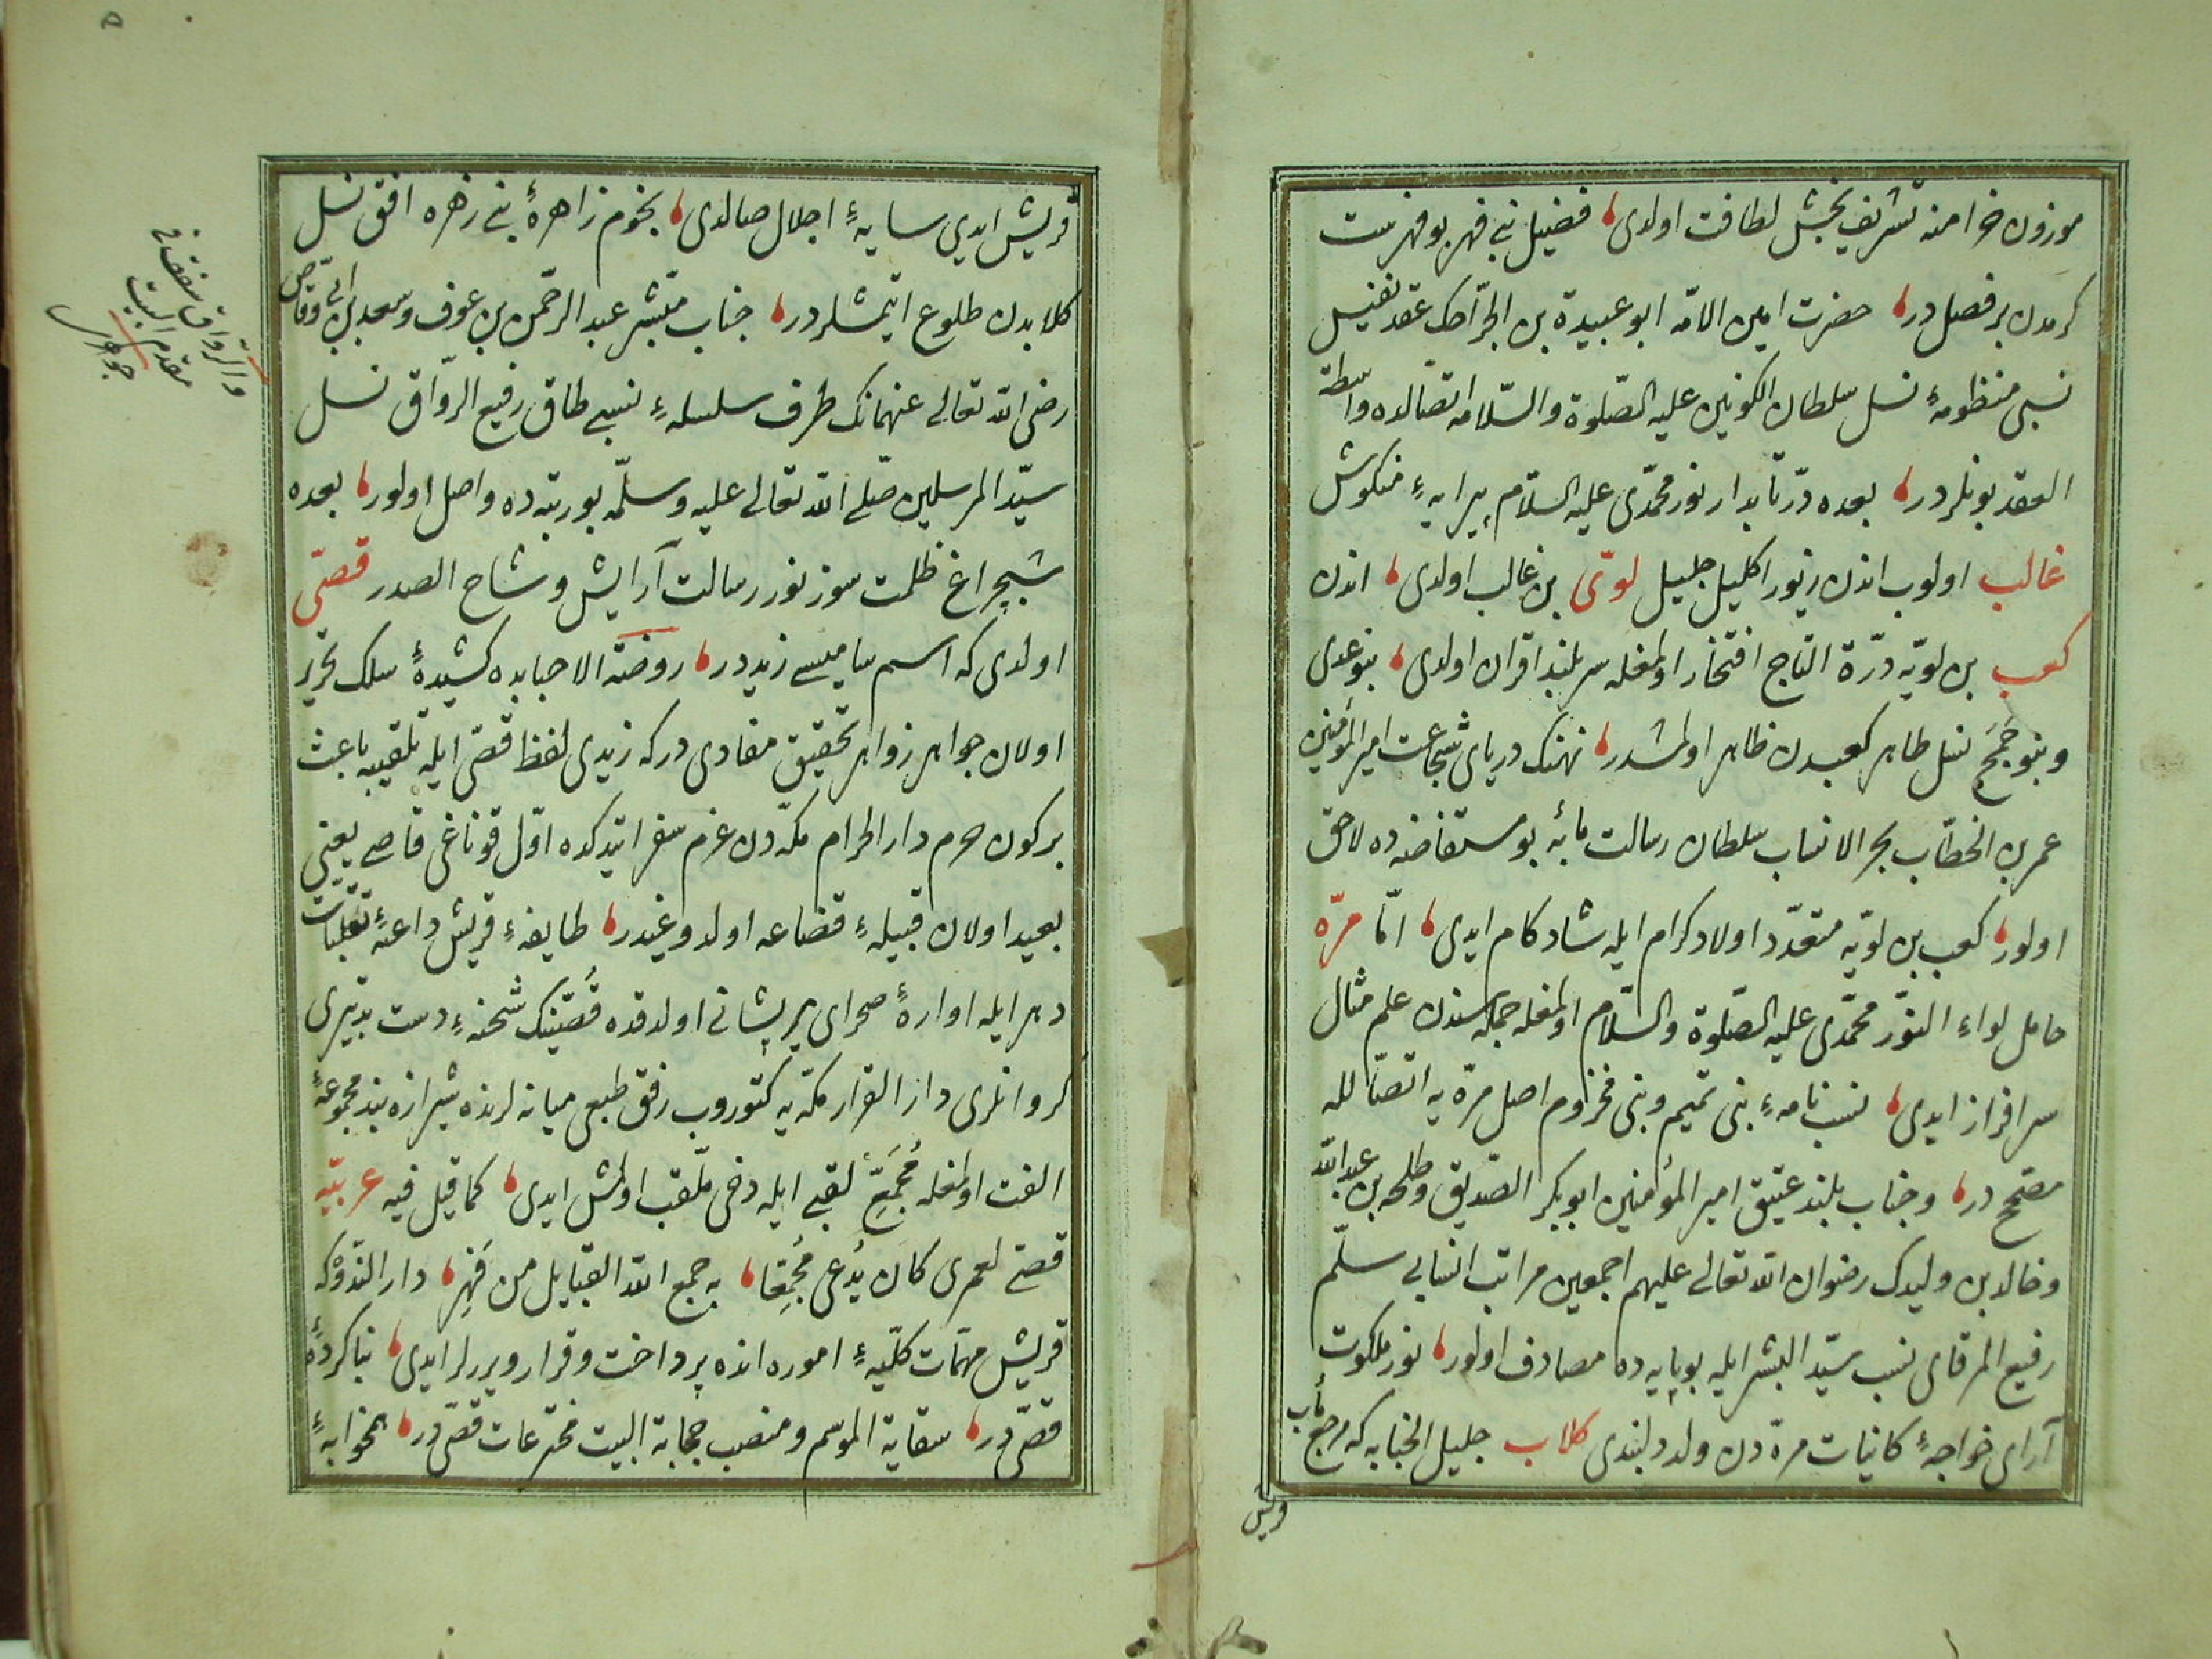 موزون خرامنه تشریف بخش لطافت اولدی، فضیل بنی فهر بو فهرست
کرمدن بر فصل در، حضرت امین الامّه ابو عبیدة بن الجرّاحک عقد نفیس
نسبی منظومهٔ نسل سلطان الکونین علیه الصّلوة والسّلامه اتصالده واسطة
العقد بونلردر، بعده درّ تابدار نور محمّدی علیه السّلام پیرایهٔ منکوش
غالب اولوب اندن زیور اکلیل جلیل لوی بن غالب اولدی، اندن
کعب بن لویّه درّة التاج افتخار اولمغله سربلند اقران اولدی، بنو عدی
و بنو جُمَح نسل طاهر کعبدن ظاهر اولمشدر، نهنک دریای شجاعت امیر المؤمنین
عمر بن الخطّاب بحر الانساب سلطان رسالت مآبه بو مستفاضه ده لاحق
اولور، کعب بن لویّه متعدّد اولاد کرام ایله شاد کام ایدی، امّا مرّه
حامل لواء النّور محمّدی علیه الصّلوة والسّلام اولمغله جمله سندن علم مثال
سرافراز ایدی، نسب نامهٔ بنی تمیم و بنی مخزوم اصل مرّه یه اتصالله
مصحّح در، و جناب بلند عتیق امیر المؤمنین ابو بکر الصّدیق و طلحه بن عبد الله
و خالد بن ولیدک رضوان الله تعالی علیهم اجمعین مراتب انسابی سلّم
رفیع المرقای نسب سیّد البشر ایله بو پایه ده مصادف اولور، نور ملکوت
آرای خواجهٔ کاینات مرّه دن ولد دلبندی کلاب جلیل الجنابه که مرجع مآب
قریش
قریش ایدی سایهٔ اجلال صالدی، نجوم زاهرهٔ بنی زهره افق نسل
کلابدن طلوع ایتمشلردر، جناب مبشّر عبد الرحمن بن عوف و سعد بن ابی وقاص
رضی الله تعالی عنهمانک طرف سلسلهٔ نسبی طاق رفیع الرّواق نسل
سیّد المرسلین صلّی الله تعالی علیه وسلّمه بو رتبه ده واصل اولور، بعده
شبچراغ ظلمت سوز نور رسالت آرایش وشاح الصدر قصیّ
اولدی که اسم سامیسی زیددر، روضة الاحبابده کشیدهٔ سلک تحریر
اولان جواهر زواهر تحقیق مفادی درکه زیدی لفظ قصیّ ایله تلقیبه باعث
بر کون حرم دار الحرام مکّه دن عزم سفر ایتدکده اوّل قوناغی قاصی یعنی
بعید اولان قبیلهٔ قضاعه اولدوغیدر، طایفهٔ قریش داعیهٔ تقلّبات
دهر ایله اوارهٔ صحرای پریشانی اولدقده قصیّنک شحنهٔ دست تدبیری
کروانلری دار القرار مکّه یه کتوروب رفق طبعی میانه لرنده شیرازه بند مجموعهٔ
الفت اولمغله مُجَمِّع لقبی ایله دخی ملقّب اولمش ایدی، کما قیل فیه عربیّه
قصیّ لعمری کان یُدعی مُجمِّعا، به جمع الله القبایل من فِهر، دار الندوه که
قریش مهمّات کلّیهٔ اموره انده پرداخت و قرار ویررلر ایدی، بنا کردهٔ
قصیّ در، سقایة الموسم و منصب حجابة البیت مخترعات قصیّ در،
والرّواق
مقدم البیت
جوهری